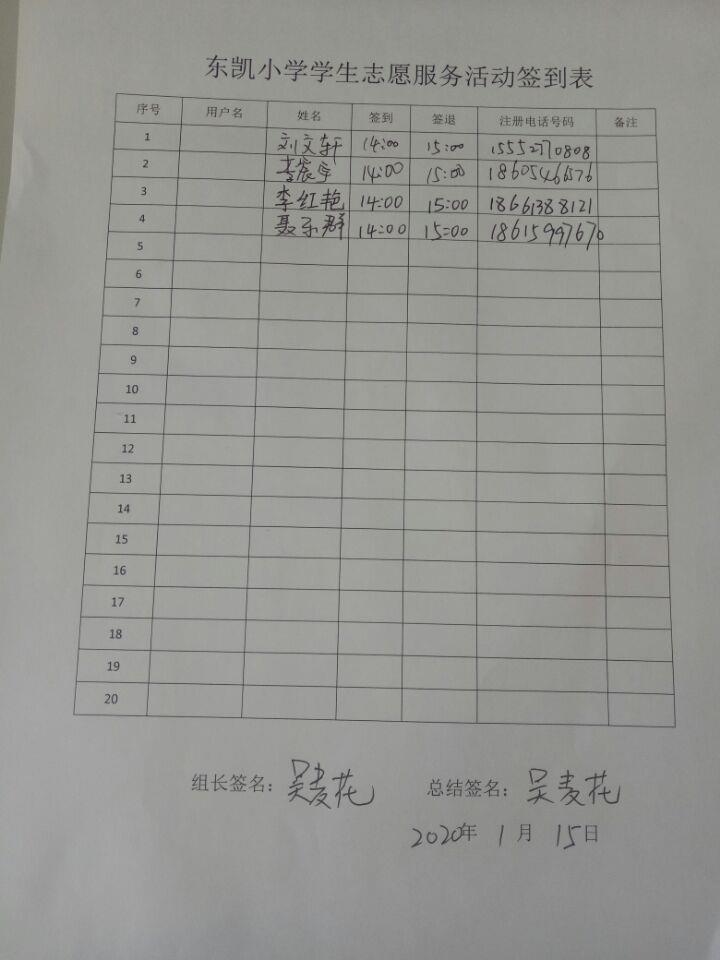 东凯小学学生志愿服务活动签到表
序号 用户名 姓名 签到 签退 注册电话号码 备注
1 刘文轩 14:00 15:00 15552770808
2 李宸宇 14:00 15:00 18605446576
3 李红艳 14:00 15:00 18661388121
4 聂乐群 14:00 15:00 18615997670
5
6
7
8
9
10
11
12
13
14
15
16
17
18
19
20
组长签名：吴麦花 总结签名：吴麦花
2020年 1月 15日